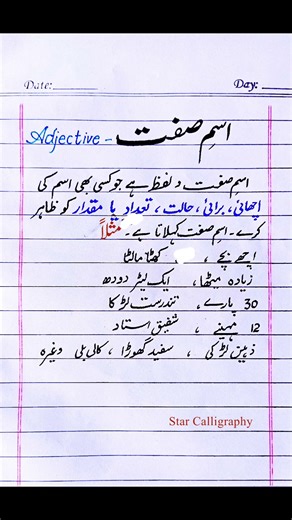 Date: Day:
Adjective - اسمِ صفت
اسم صفت وہ لفظ ہے جو کسی بھی اسم کی
اچھائی، برائی، حالت، تعداد یا مقدار کو ظاہر
کرے۔ اسم صفت کہلاتا ہے۔ مثلاً
اچھے بچے ، کھٹا مالٹا
زیادہ میٹھا ، ایک لیٹر دودھ
30 پارے ، تندرست لڑکا
12 مہینے ، شفیق استاد
ذہین لڑکی ، سفید گھوڑا ، کالی بلی وغیرہ
Star Calligraphy